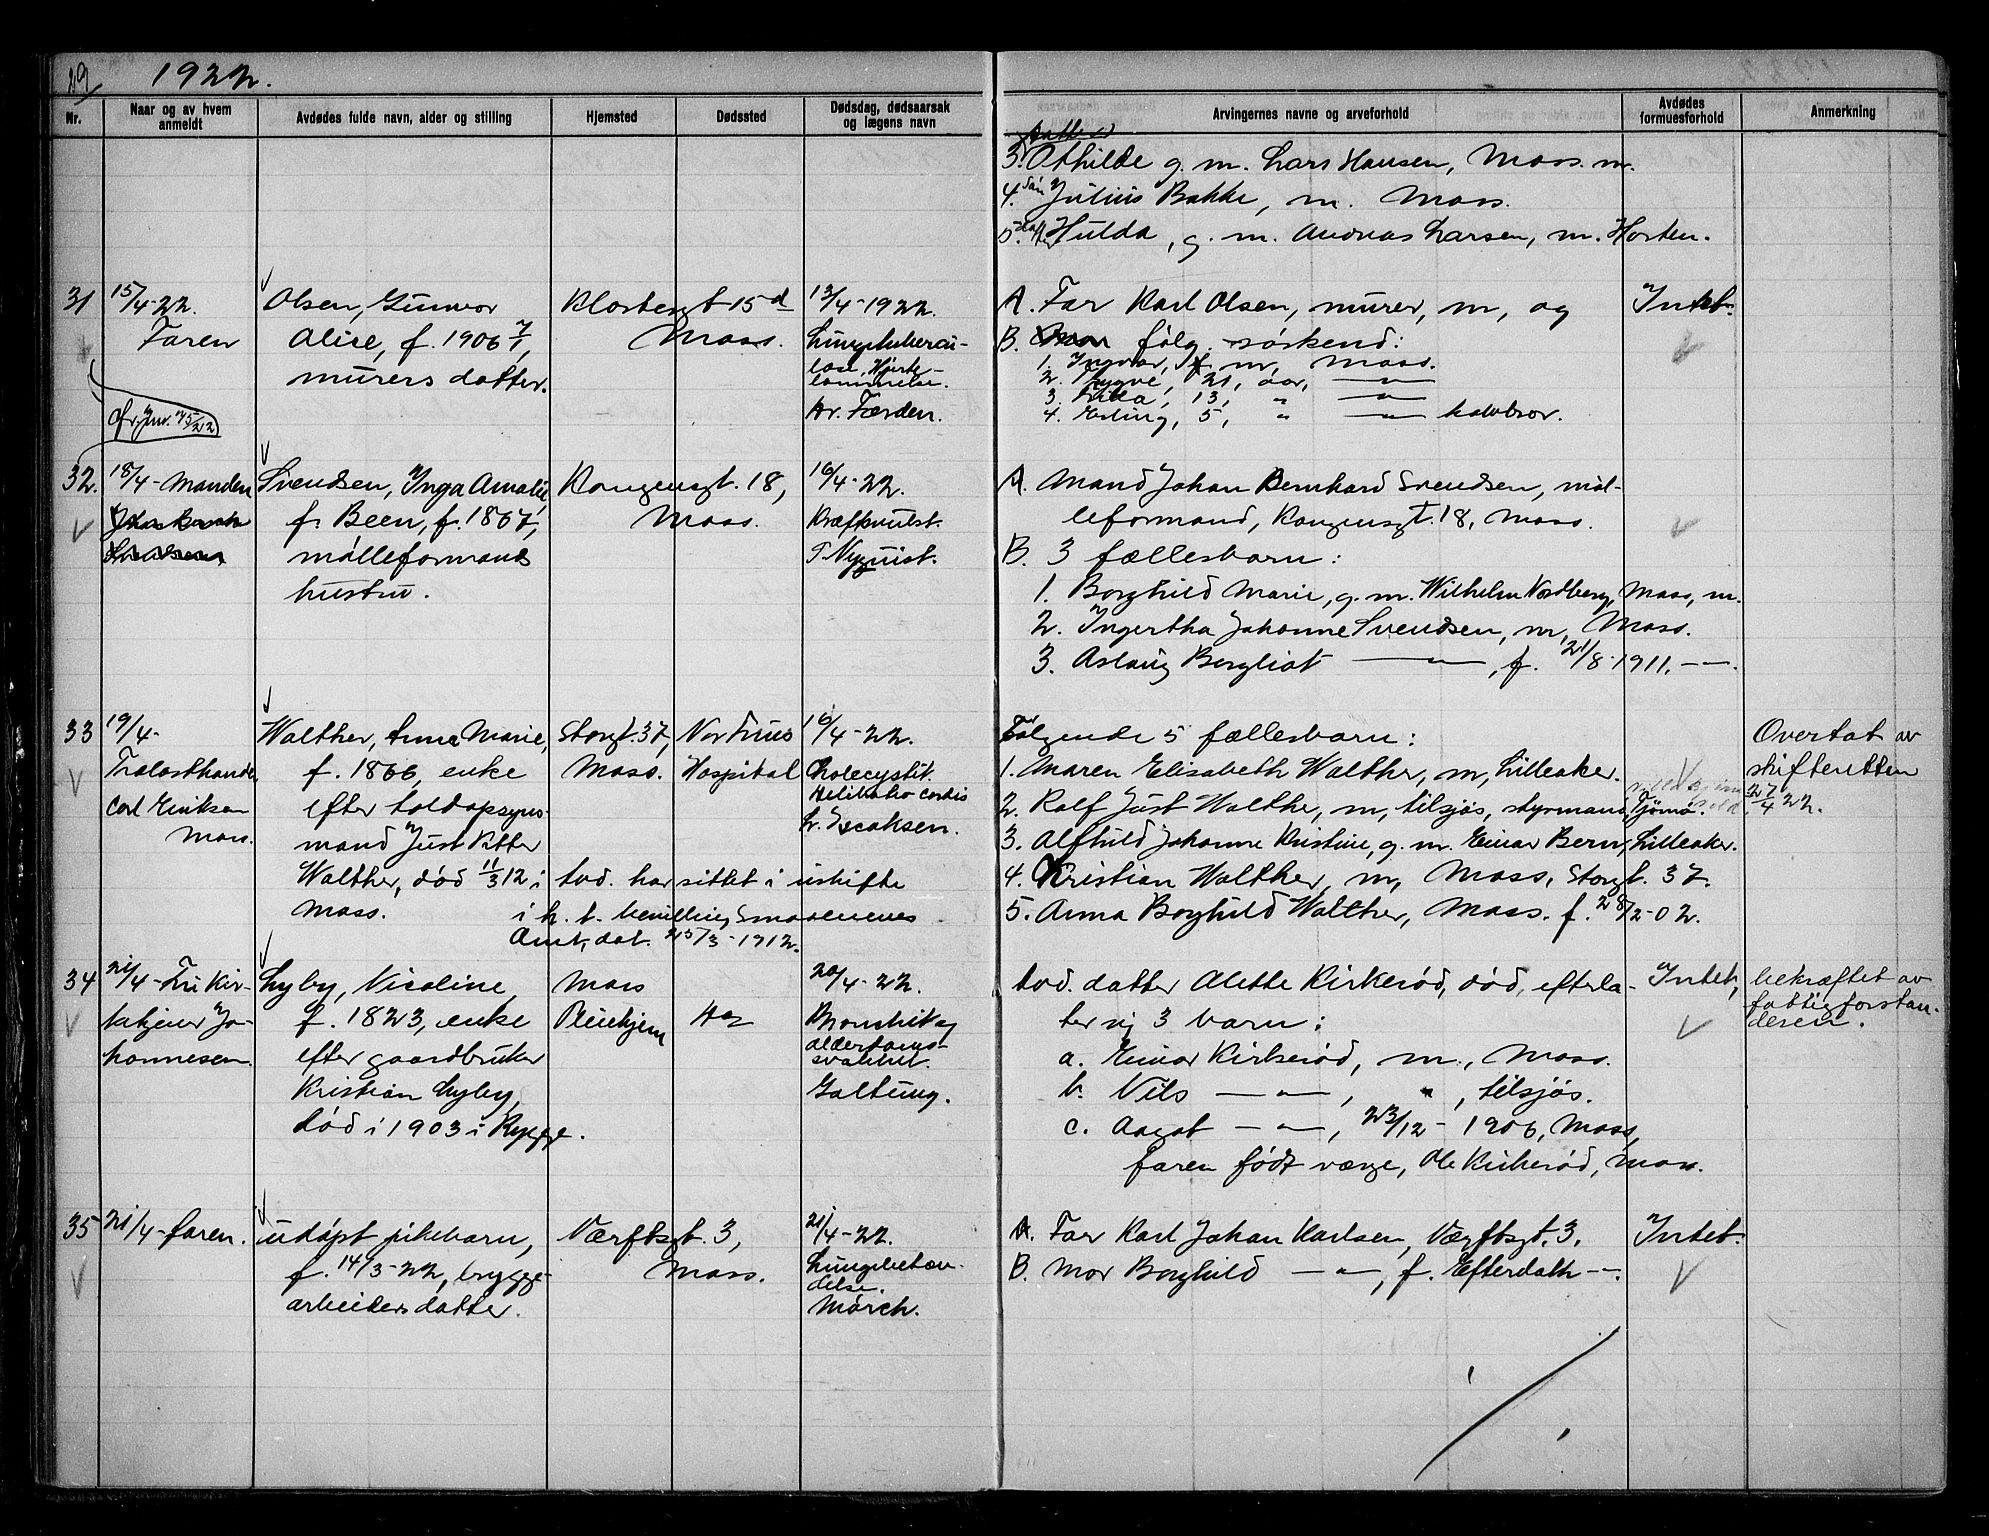 19
1922.
Nr.
Naar og av hvem anmeldt
Avdødes fulde navn, alder og stilling
Hjemsted
Dødssted
Dødsdag, dødsaarsak og lægens navn
Arvingernes navne og arveforhold
Avdødes formuesforhold
Anmerkning
datter
3. Othilde g. m. Lars Hansen, Moss. m.
4. søn Julius Bakke, m. Moss.
5. datter Hulda, g. m. Andreas Larsen, m. Horten.
31
15/4-22.
Faren
Olsen, Gunvor
Alise, f. 1906 7/1,
murers datter.
Klostergt 15 d
Moss.
13/4-1922.
Lungetubercu-
lose, Hjerte-
lammelse.
Dr. Færden.
A. Far Karl Olsen, murer, m, og
B. følg. søskend:
1. Ingvar, m, Moss.
2. Trygve, 21, aar, — " —
3. 13, " — " —
4. Erling, 5, " — " — halvbror.
Intet.
cfr. Jnr. 75/22
32.
18/4 - Manden
Svendsen, Inga Amalie
f. Been, f. 1867,
mølleformands
hustru.
Kongensgt. 18,
Moss.
16/4-22.
Kræftsvulst.
T. Nyquist.
A. Mand Johan Bernhard Svendsen, møl-
leformand, Kongensgt. 18, Moss.
B. 3 fællesbarn:
1. Borghild Marie, g. m. Wilhelm Nordberg, Moss, m.
2. Ingertha Johanne Svendsen, m, Moss.
3. Aslaug Bergliot — " —, f. 21/8-1911, — " —.
33
19/4-
Trælasthandler
Carl Eriksen
Moss.
Walther, Anna Marie,
f. 1866, enke
efter toldopsyns-
mand Just Petter
Walther, død 11/3 12 i
Moss.
Storgt. 37,
Moss.
Vor Frues
Hospital
16/4-22.
Cholecystit.
Debilitatio cordis
Dr. Isaksen.
avd. har sittet i uskifte
i h. t. bevilling Smaalenenes
Amt, dat. 25/3-1912.
Følgende 5 fællesbarn:
1. Maren Elisabeth Walther, m, Lilleaker.
2. Rolf Just Walther, m, tilsjøs, styrmand, Tjømø.
3. Alfhild Johanne Kristine, g. m. Einar Bern, Lilleaker.
4. Kristian Walther, m, Moss, Storgt. 37.
5. Anna Borghild Walther, Moss. f. 28/2-02.
Overtat av
skifteretten
27/4 22.
34
21/4 - Fru Kir-
ketjener Jo-
hannesen.
Lyby, Nicoline,
f. 1823, enke
efter gaardbruker
Kristian Lyby,
død i 1903 i Rygge.
Moss
Pleiehjem
do
20/4-22.
Bronchit og
alderdoms-
svakhet.
Galtung.
avd. datter Alette Kirkerød, død, efterla-
ter sig 3 barn:
a. Einar Kirkerød, m., Moss.
b. Nils — " —, ", tilsjøs.
c. Aagot — " —, 23/12-1906, Moss,
faren født verge, Ole Kirkerød, Moss.
Intet,
bekræftet av
fattigforstan-
deren.
35
21/4 - faren.
udøpt pikebarn,
f. 14/3-22, brygge-
arbeiders datter.
Værftsgt. 3,
Moss.
21/4-22.
Lungebetæn-
delse.
Mørch.
A. Far Karl Johan Karlsen, Værftsgt. 3.
B. Mor Borghild — " —, f. Efterdath — " —.
Intet.